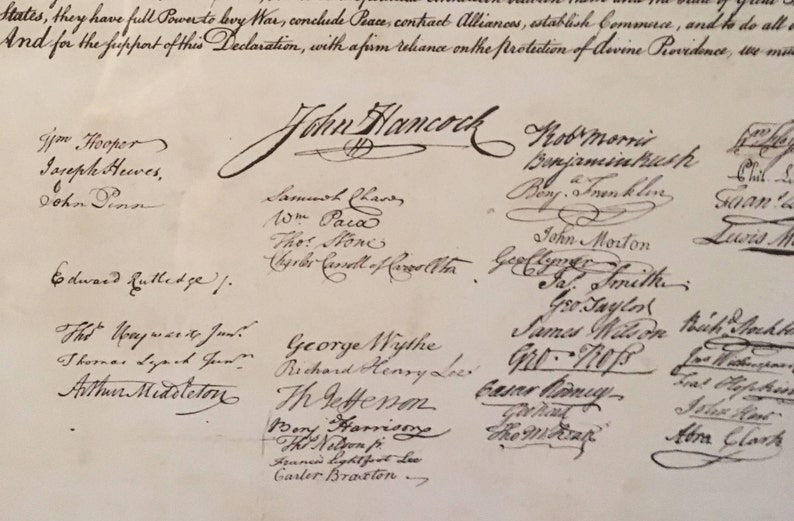 States, they have full Power to levy War, conclude Peace, contract Alliances, establish Commerce, and to do all
And for the support of this Declaration, with a firm reliance on the protection of divine Providence, we
John Hancock
Wm Hooper
Joseph Hewes,
John Penn
Edward Rutledge /.
Thos Heyward Junr.
Thomas Lynch Junr.
Arthur Middleton
Samuel Chase
Wm Paca
Thos. Stone
Charles Carroll of Carrollton
George Wythe
Richard Henry Lee
Th Jefferson
Benj Harrison
Thos Nelson jr.
Francis Lightfoot Lee
Carter Braxton
Robt Morris
Benjamin Rush
Benja. Franklin
John Morton
Geo Clymer
Jas. Smith
Geo. Taylor
James Wilson
Geo. Ross
Caesar Rodney
Geo Read
Tho M:Kean
Phil. L
Fran
Lewis M
Richd Stockt
Jno Witherspoon
Fras Hopkins
John Hart
Abra Clark